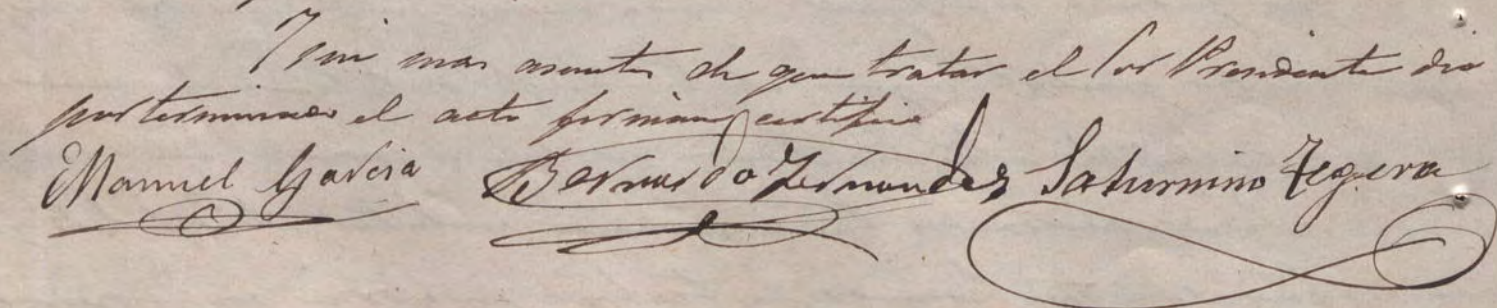 Y sin mas asuntos de que tratar el Sor Presidente dio
por terminado el acto firman certifico
Manuel Garcia Bernardo Fernandez Saturnino Tegera